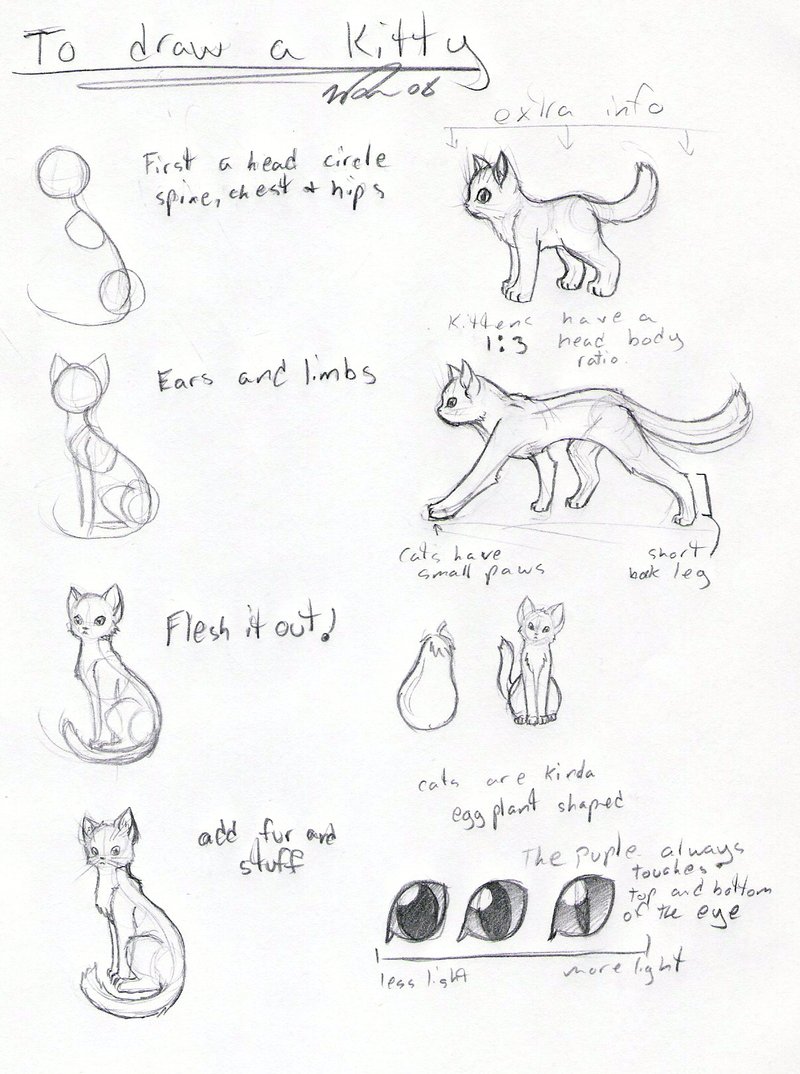 To draw a Kitty
08
extra info
First a head circle
spine, chest + hips
Kittens have a
1:3 head body
ratio.
Ears and limbs
cats have
small paws
short
back leg
Flesh it out!
cats are kinda
egg plant shaped
add fur and
stuff
The puple always
touches
top and bottom
of the eye
less light
more light